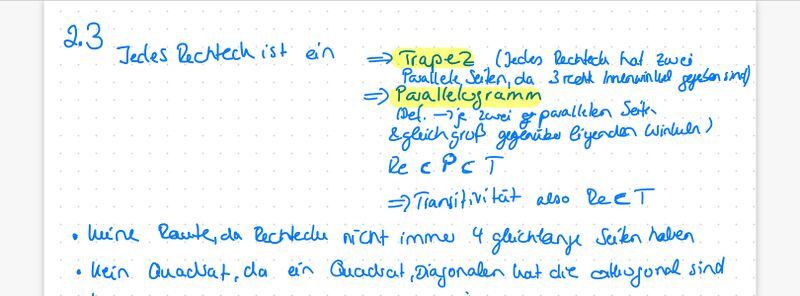 2.3 Jedes Rechteck ist ein ⇒ Trapez (Jedes Rechteck hat zwei
Parallele Seiten, da 3 recht Innenwinkel gegeben sind)
⇒ Parallelogramm
(Def. → je zwei parallelen Seiten
& gleich groß gegenüber liegenden Winkeln)
Re ⊂ P ⊂ T
⇒ Transitivität also Re ⊂ T
• keine Raute, da Rechtecke nicht immer 4 gleichlange Seiten haben
• kein Quadrat, da ein Quadrat, Diagonalen hat die orthogonal sind